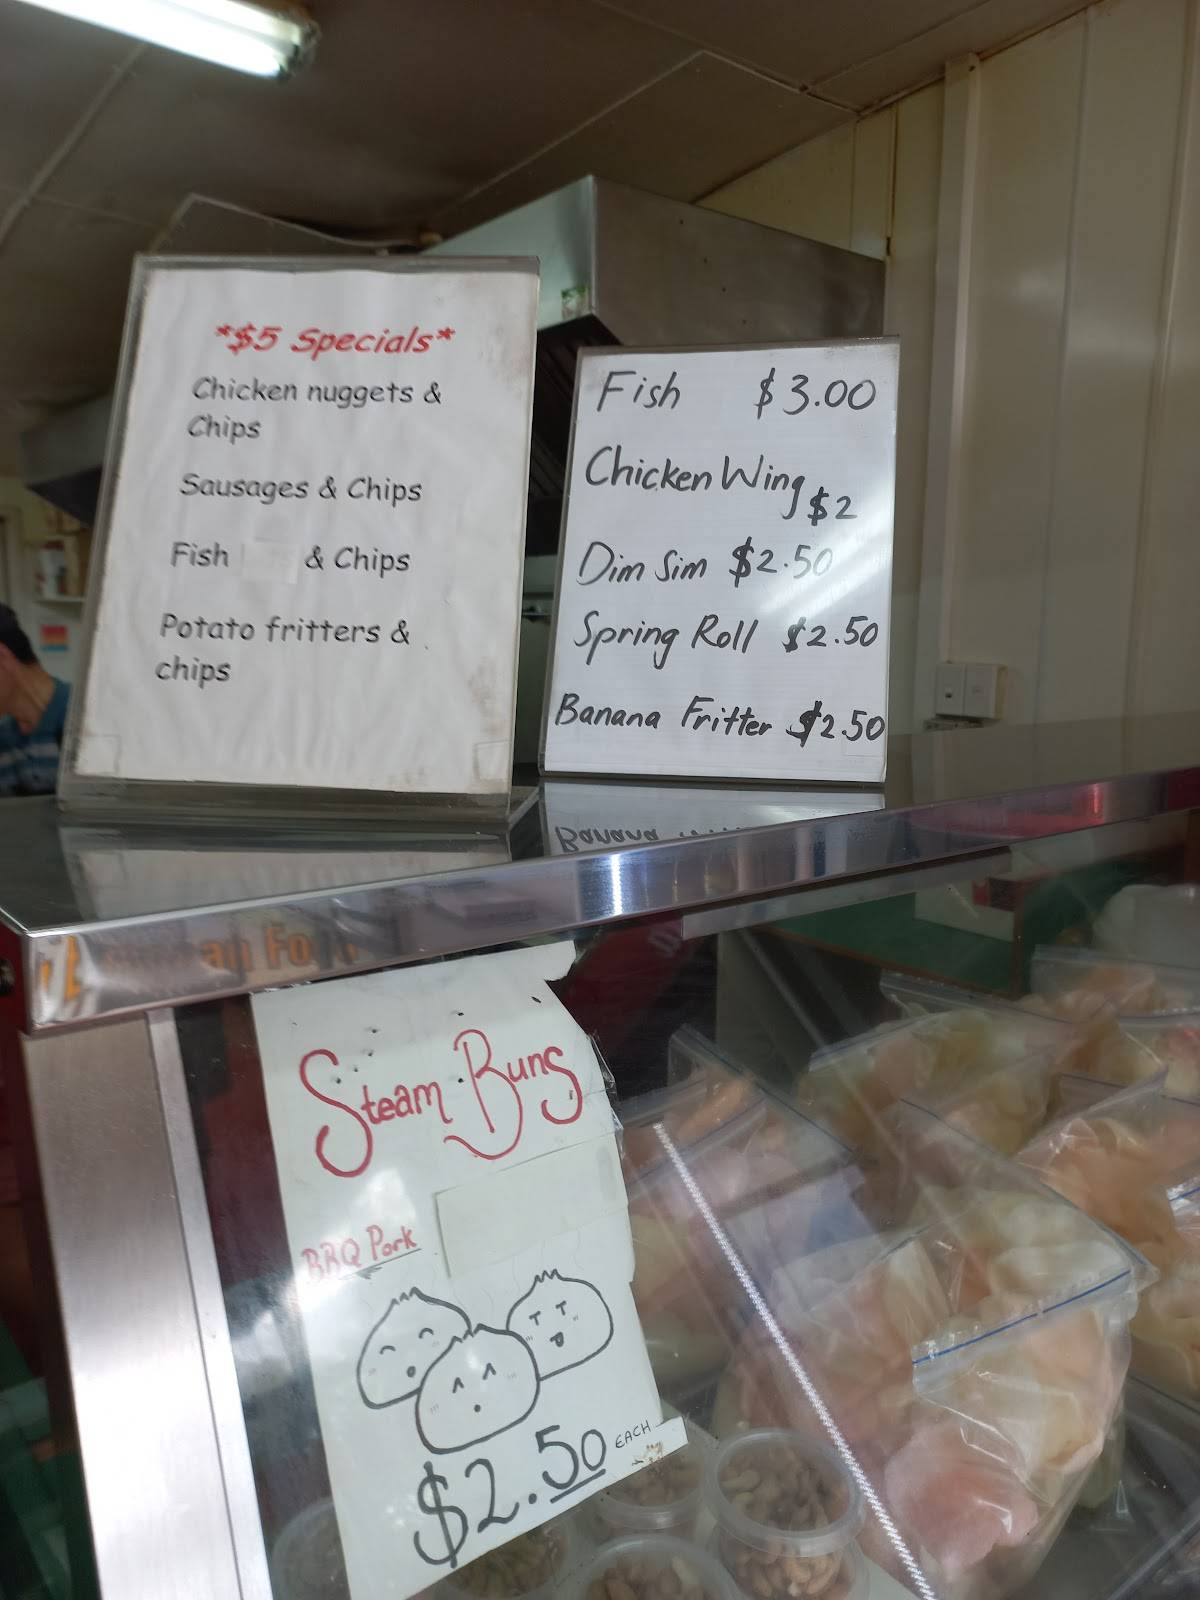 *$5 Specials*
Chicken nuggets &
Chips
Sausages & Chips
Fish & Chips
Potato fritters &
chips
Fish $3.00
Chicken Wing $2
Dim Sim $2.50
Spring Roll $2.50
Banana Fritter $2.50
Banana
Steam Buns
BBQ Pork
$2.50 EACH